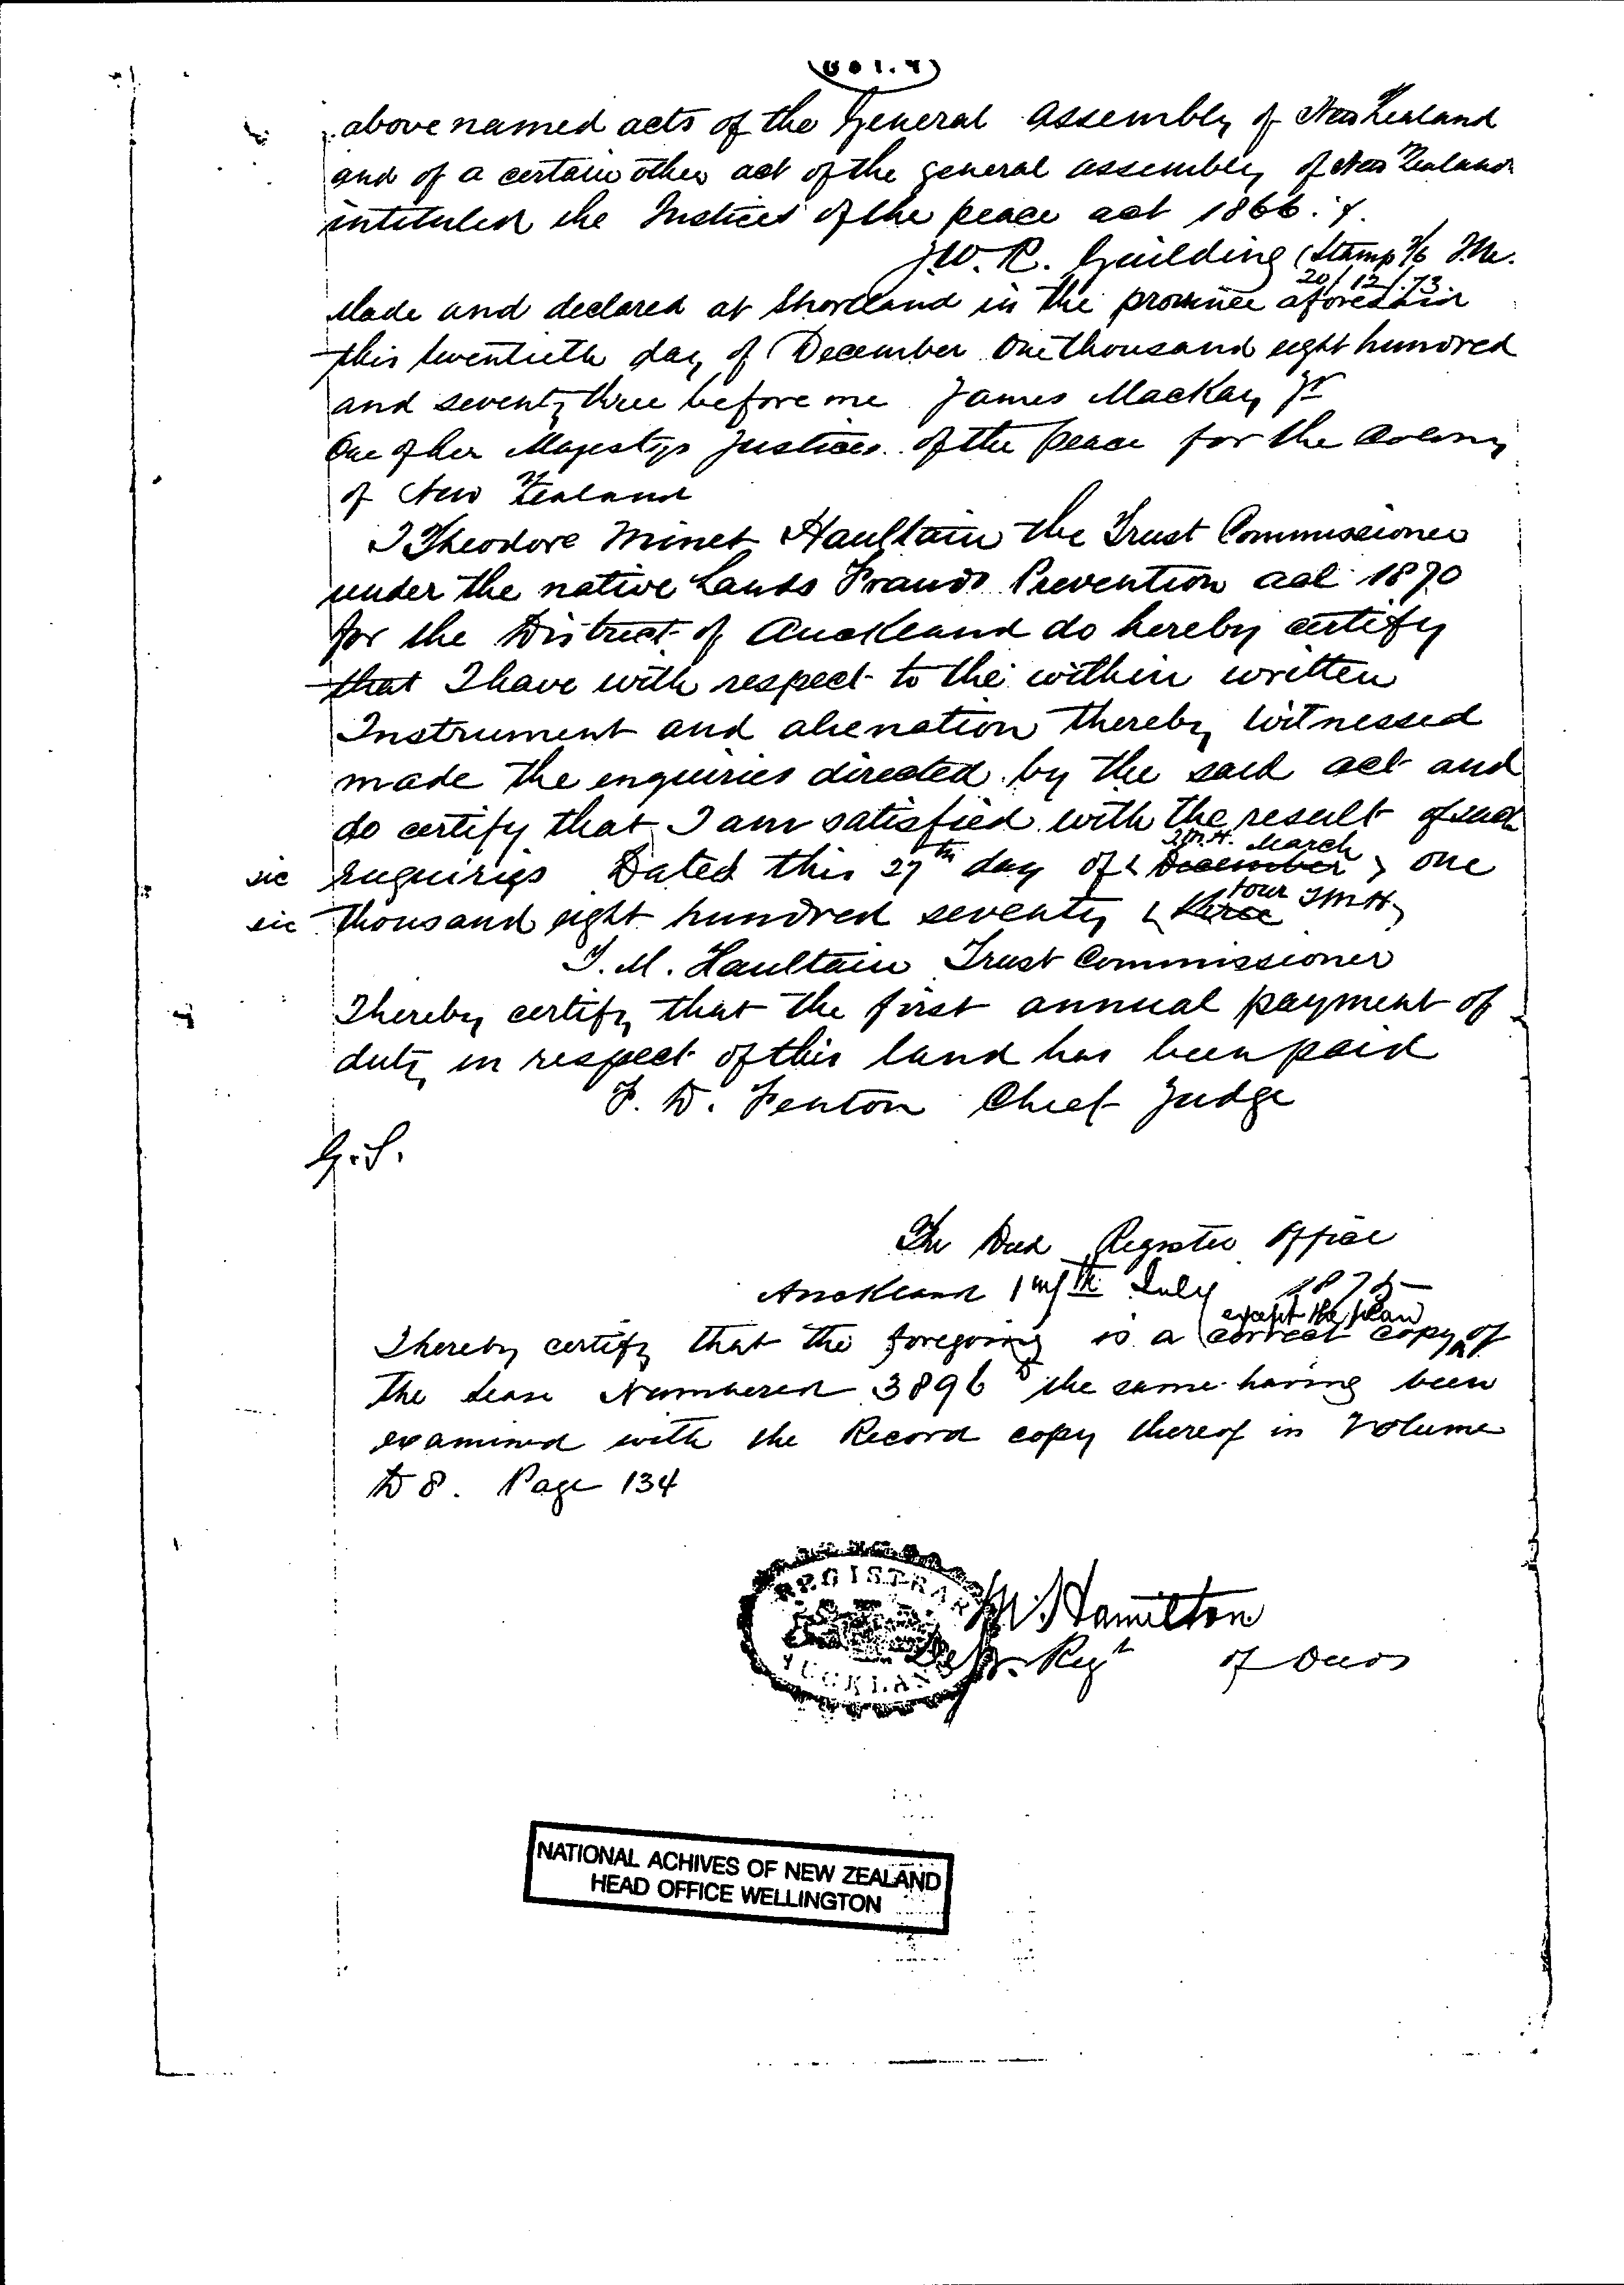 above named acts of the General assembly of New Zealand
and of a certain other act of the general assembly of New Zealand
intituled the Justices of the peace act 1866.
J.W. R. Guilding (Stamp 2/6 J.M.
20/12/73.
Made and declared at Shortland in the province aforesaid
this twentieth day of December One thousand eight hundred
and seventy three before me James Mackay Jr
One of her Majestys Justices of the peace for the Colony
of New Zealand
I Theodore Minet Haultain the Trust Commissioner
under the native Lands Frauds Prevention act 1870
for the District of Auckland do hereby certify
that I have with respect to the within written
Instrument and alienation thereby witnessed
made the enquiries directed by the said act and
do certify that I am satisfied with the result of such
T.M.H. March
sic enquiries Dated this 27th day of December one
four T.M.H.
sic thousand eight hundred seventy three
T. M. Haultain Trust Commissioner
I hereby certify that the first annual payment of
duty in respect of this land has been paid
F. D. Fenton Chief Judge
G.S.
The Deed Register Office
Auckland July 1875
except the plan
I hereby certify that the foregoing is a correct copy of
the Lease Numbered 3896 D the same having been
examined with the Record copy thereof in Volume
D 8. Page 134
REGISTRAR
AUCKLAND
W. Hamilton
Dep. Regr of Deeds
NATIONAL ACHIVES OF NEW ZEALAND
HEAD OFFICE WELLINGTON